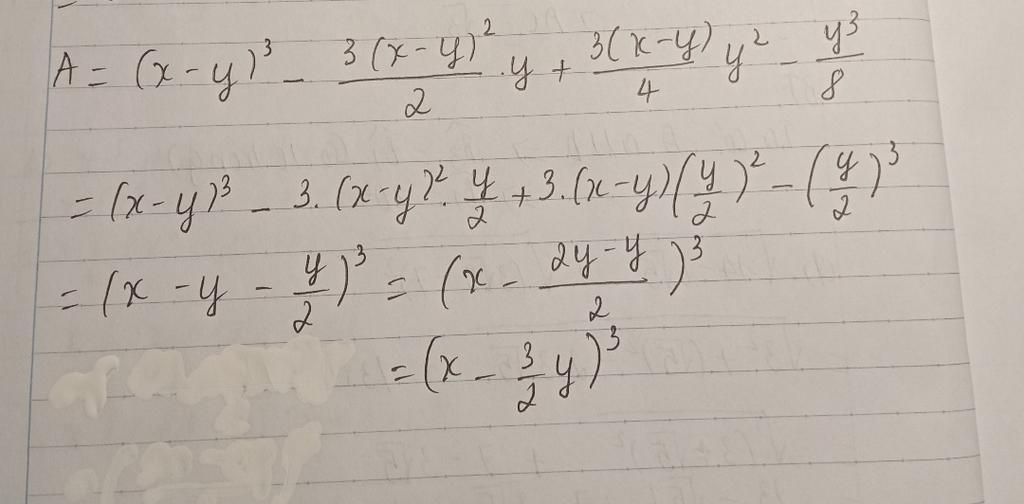 A = (x - y)³ - 3(x - y)²/2 . y + 3(x - y)/4 y² - y³/8
= (x - y)³ - 3. (x - y)². y/2 + 3. (x - y) (y/2)² - (y/2)³
= (x - y - y/2)³ = (x - (2y - y)/2)³
= (x - 3/2 y)³